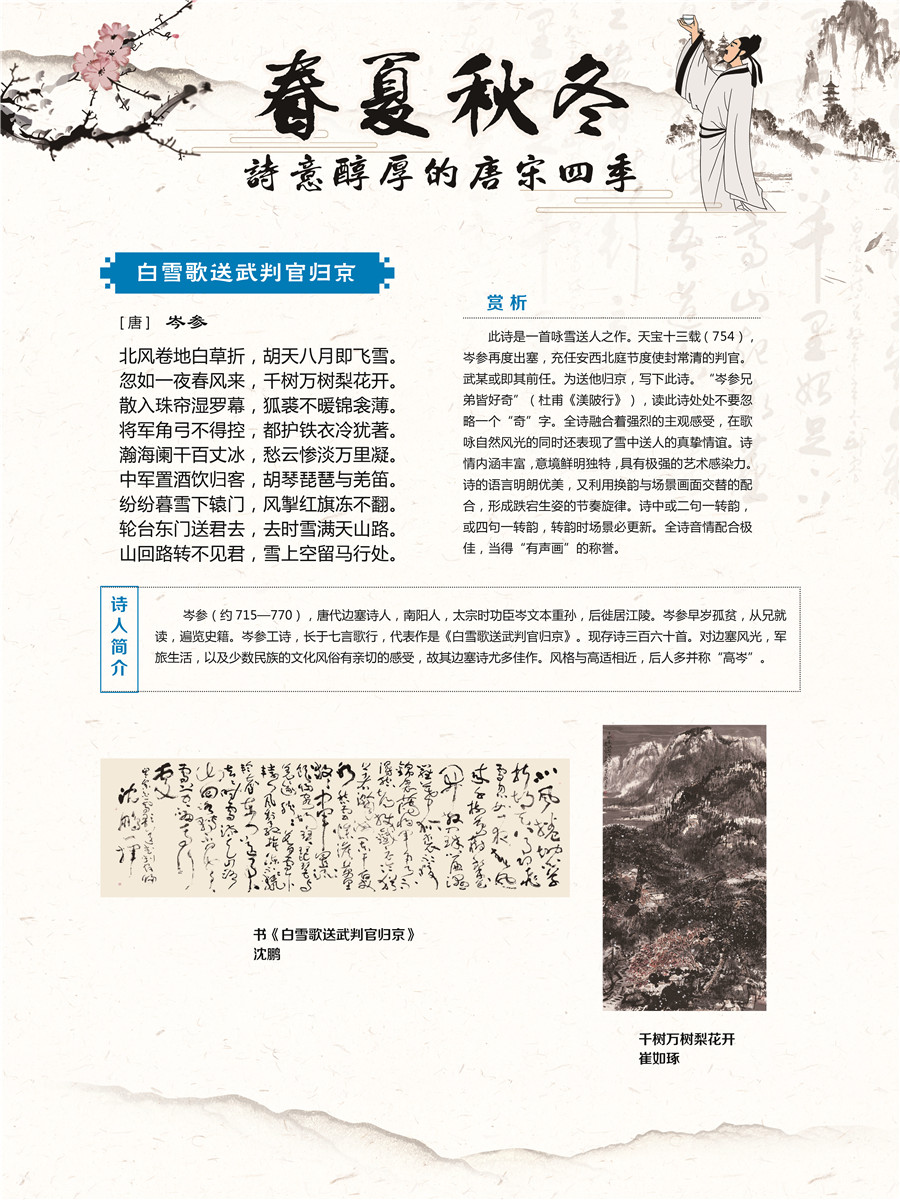 春夏秋冬
詩意醇厚的唐宋四季
白雪歌送武判官归京
［唐］ 岑参
北风卷地白草折，胡天八月即飞雪。
忽如一夜春风来，千树万树梨花开。
散入珠帘湿罗幕，狐裘不暖锦衾薄。
将军角弓不得控，都护铁衣冷犹著。
瀚海阑干百丈冰，愁云惨淡万里凝。
中军置酒饮归客，胡琴琵琶与羌笛。
纷纷暮雪下辕门，风掣红旗冻不翻。
轮台东门送君去，去时雪满天山路。
山回路转不见君，雪上空留马行处。
赏析
此诗是一首咏雪送人之作。天宝十三载（754），
岑参再度出塞，充任安西北庭节度使封常清的判官。
武某或即其前任。为送他归京，写下此诗。“岑参兄
弟皆好奇”（杜甫《渼陂行》），读此诗处处不要忽
略一个“奇”字。全诗融合着强烈的主观感受，在歌
咏自然风光的同时还表现了雪中送人的真挚情谊。诗
情内涵丰富，意境鲜明独特，具有极强的艺术感染力。
诗的语言明朗优美，又利用换韵与场景画面交替的配
合，形成跌宕生姿的节奏旋律。诗中或二句一转韵，
或四句一转韵，转韵时场景必更新。全诗音情配合极
佳，当得“有声画”的称誉。
诗人简介
岑参（约 715—770），唐代边塞诗人，南阳人，太宗时功臣岑文本重孙，后徙居江陵。岑参早岁孤贫，从兄就
读，遍览史籍。岑参工诗，长于七言歌行，代表作是《白雪歌送武判官归京》。现存诗三百六十首。对边塞风光，军
旅生活，以及少数民族的文化风俗有亲切的感受，故其边塞诗尤多佳作。风格与高适相近，后人多并称“高岑”。
书《白雪歌送武判官归京》
沈鹏
千树万树梨花开
崔如琢